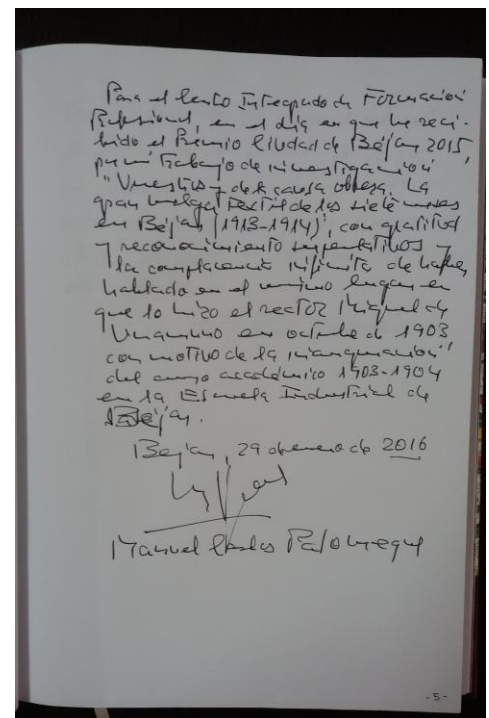 Para el Centro Integrado de Formación
Profesional, en el día en que he reci-
bido el Premio Ciudad de Béjar 2015,
por mi trabajo de investigación
"Vuestros y de la causa obrera. La
gran huelga textil de los siete meses
en Béjar (1913-1914)", con gratitud
y reconocimiento superlativos y
la complacencia infinita de haber
hablado en el mismo lugar en
que lo hizo el rector Miguel de
Unamuno en octubre de 1903
con motivo de la inauguración
del curso académico 1903-1904
en la Escuela Industrial de
Béjar.
Béjar, 29 de enero de 2016
Manuel Carlos Palomeque
-5-